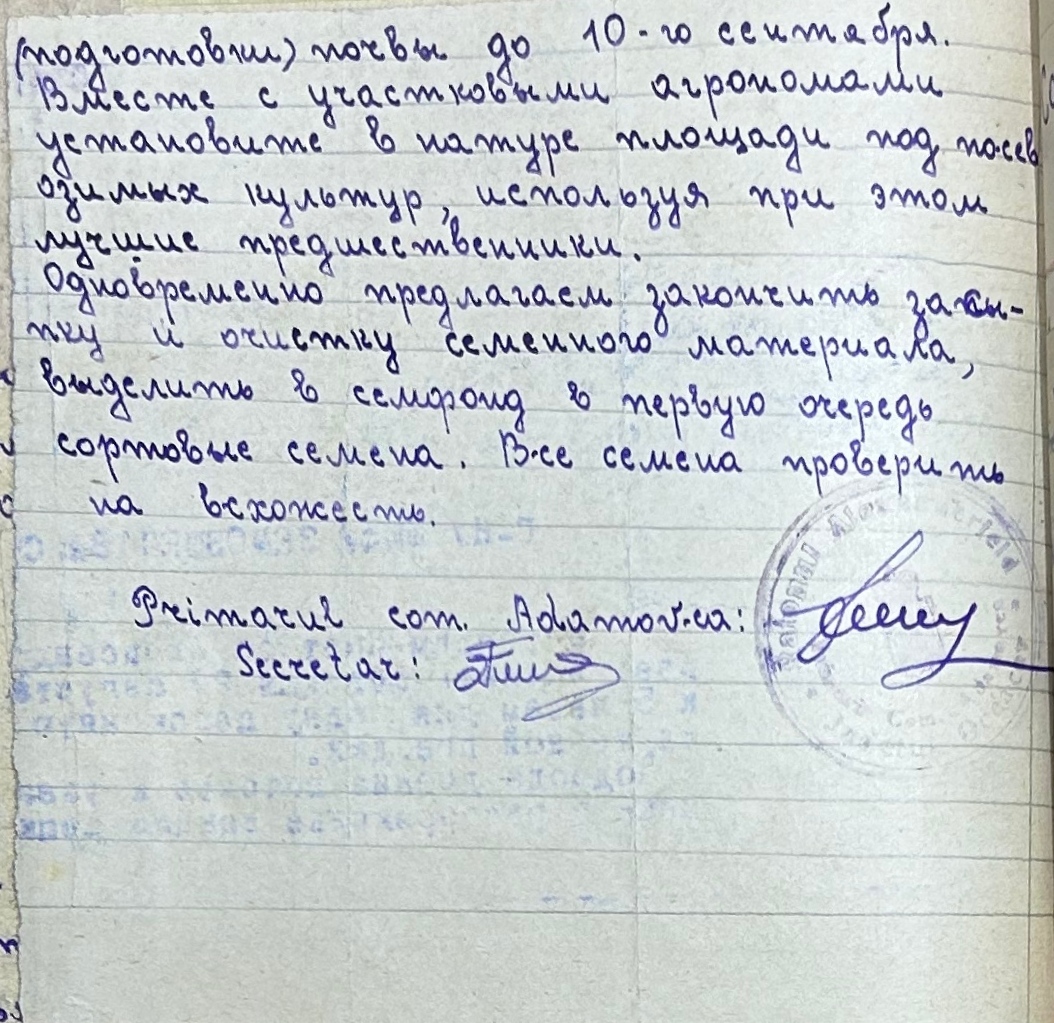 (подготовки) почвы до 10-го сентября.
Вместе с участковыми агрономами
установите в натуре площади под посев
озимых культур, используя при этом
лучшие предшественники.
Одновременно предлагаем закончить засы-
пку и очистку семенного материала,
выделить в семфонд в первую очередь
сортовые семена. Все семена проверить
на всхожесть.
Primarul com. Adamovca:
Secretar: